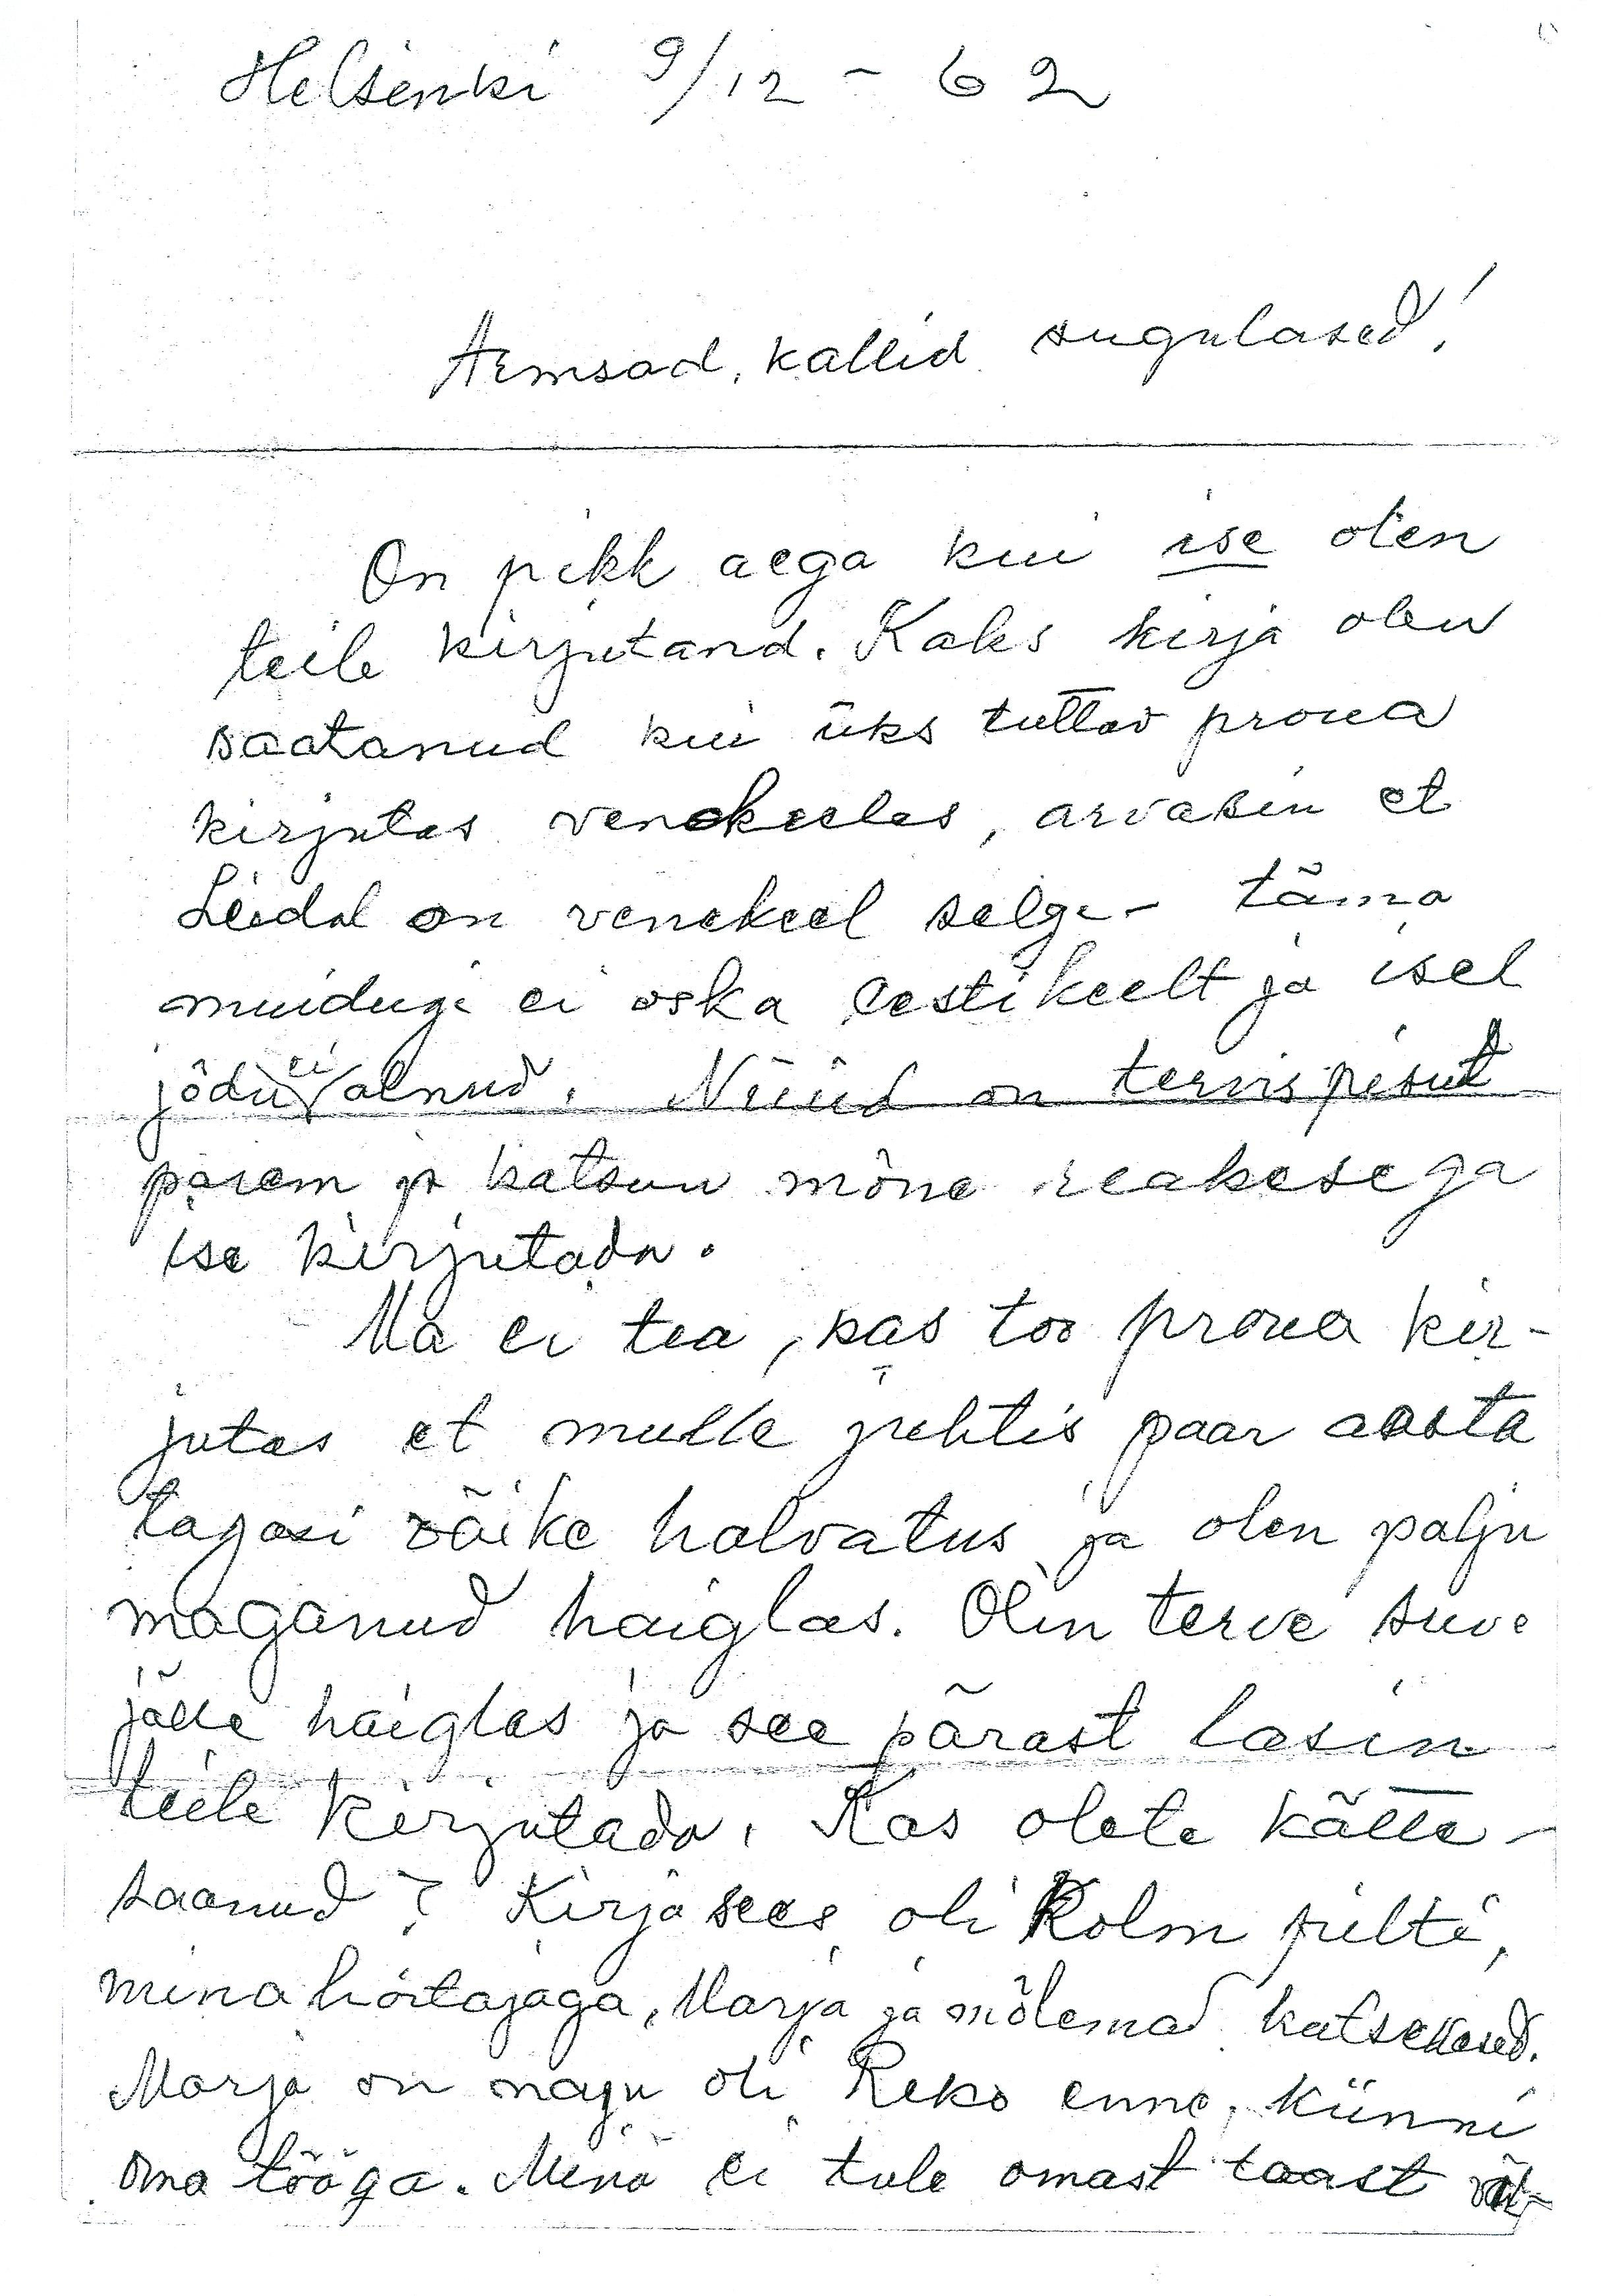 Helsinki 9/12 - 62
Armsad, kallid sugulased!
On pikk aega kui ise olen
teile kirjutand. Kaks kirja olen
saatanud kui üks tuttav proua
kirjutas venekeeles, arvasin et
Leidal on venekeel selge - täma
muidugi ei oska eestikeelt ja isel
jõdu ei olnud. Nüüd on tervis pisut
parem ja katsun mõne reakesega
ise kirjutada.
Ma ei tea, kas too proua kir-
jutas et mulle juhtis paar aasta
tagasi väike halvatus ja olen palju
maganud haiglas. Olin terve suve
jälle haiglas ja see pärast lasin
teile kirjutada. Kas olete kätte -
saanud? Kirja sees oli kolm pilti,
mina hoitajaga, Marja ja mõlemad katsekesed.
Marja on nagu oli Reko enne, kiinni
oma tööga. Mina ei tule omast toast väl-